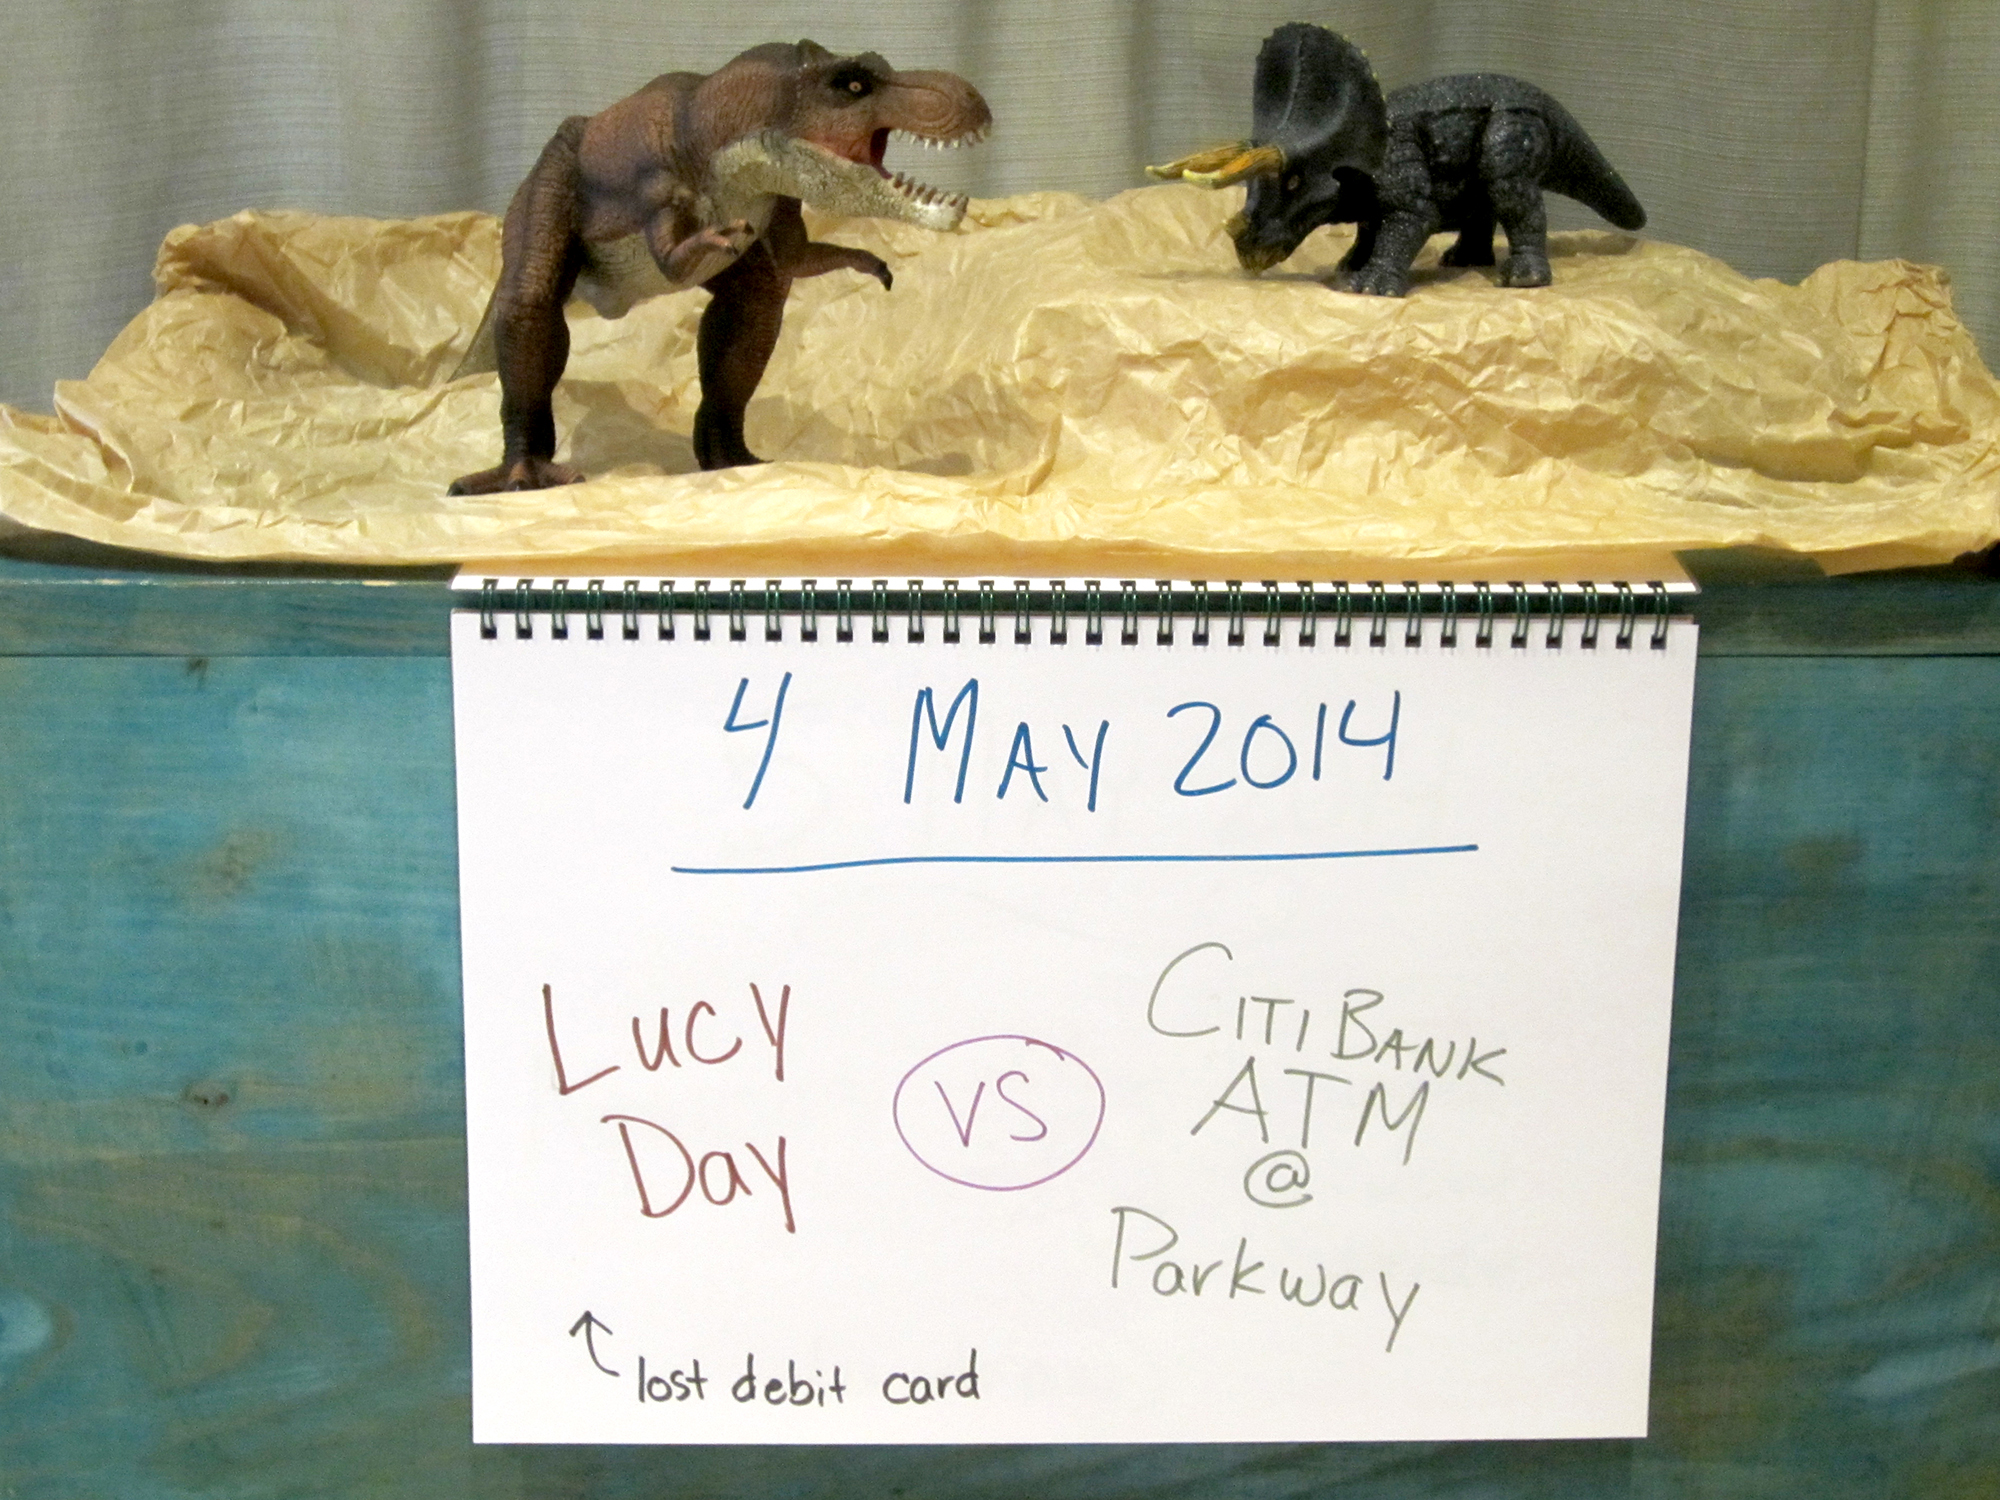 4 May 2014
Lucy
Day
VS
CitiBank
ATM
@
Parkway
lost debit card